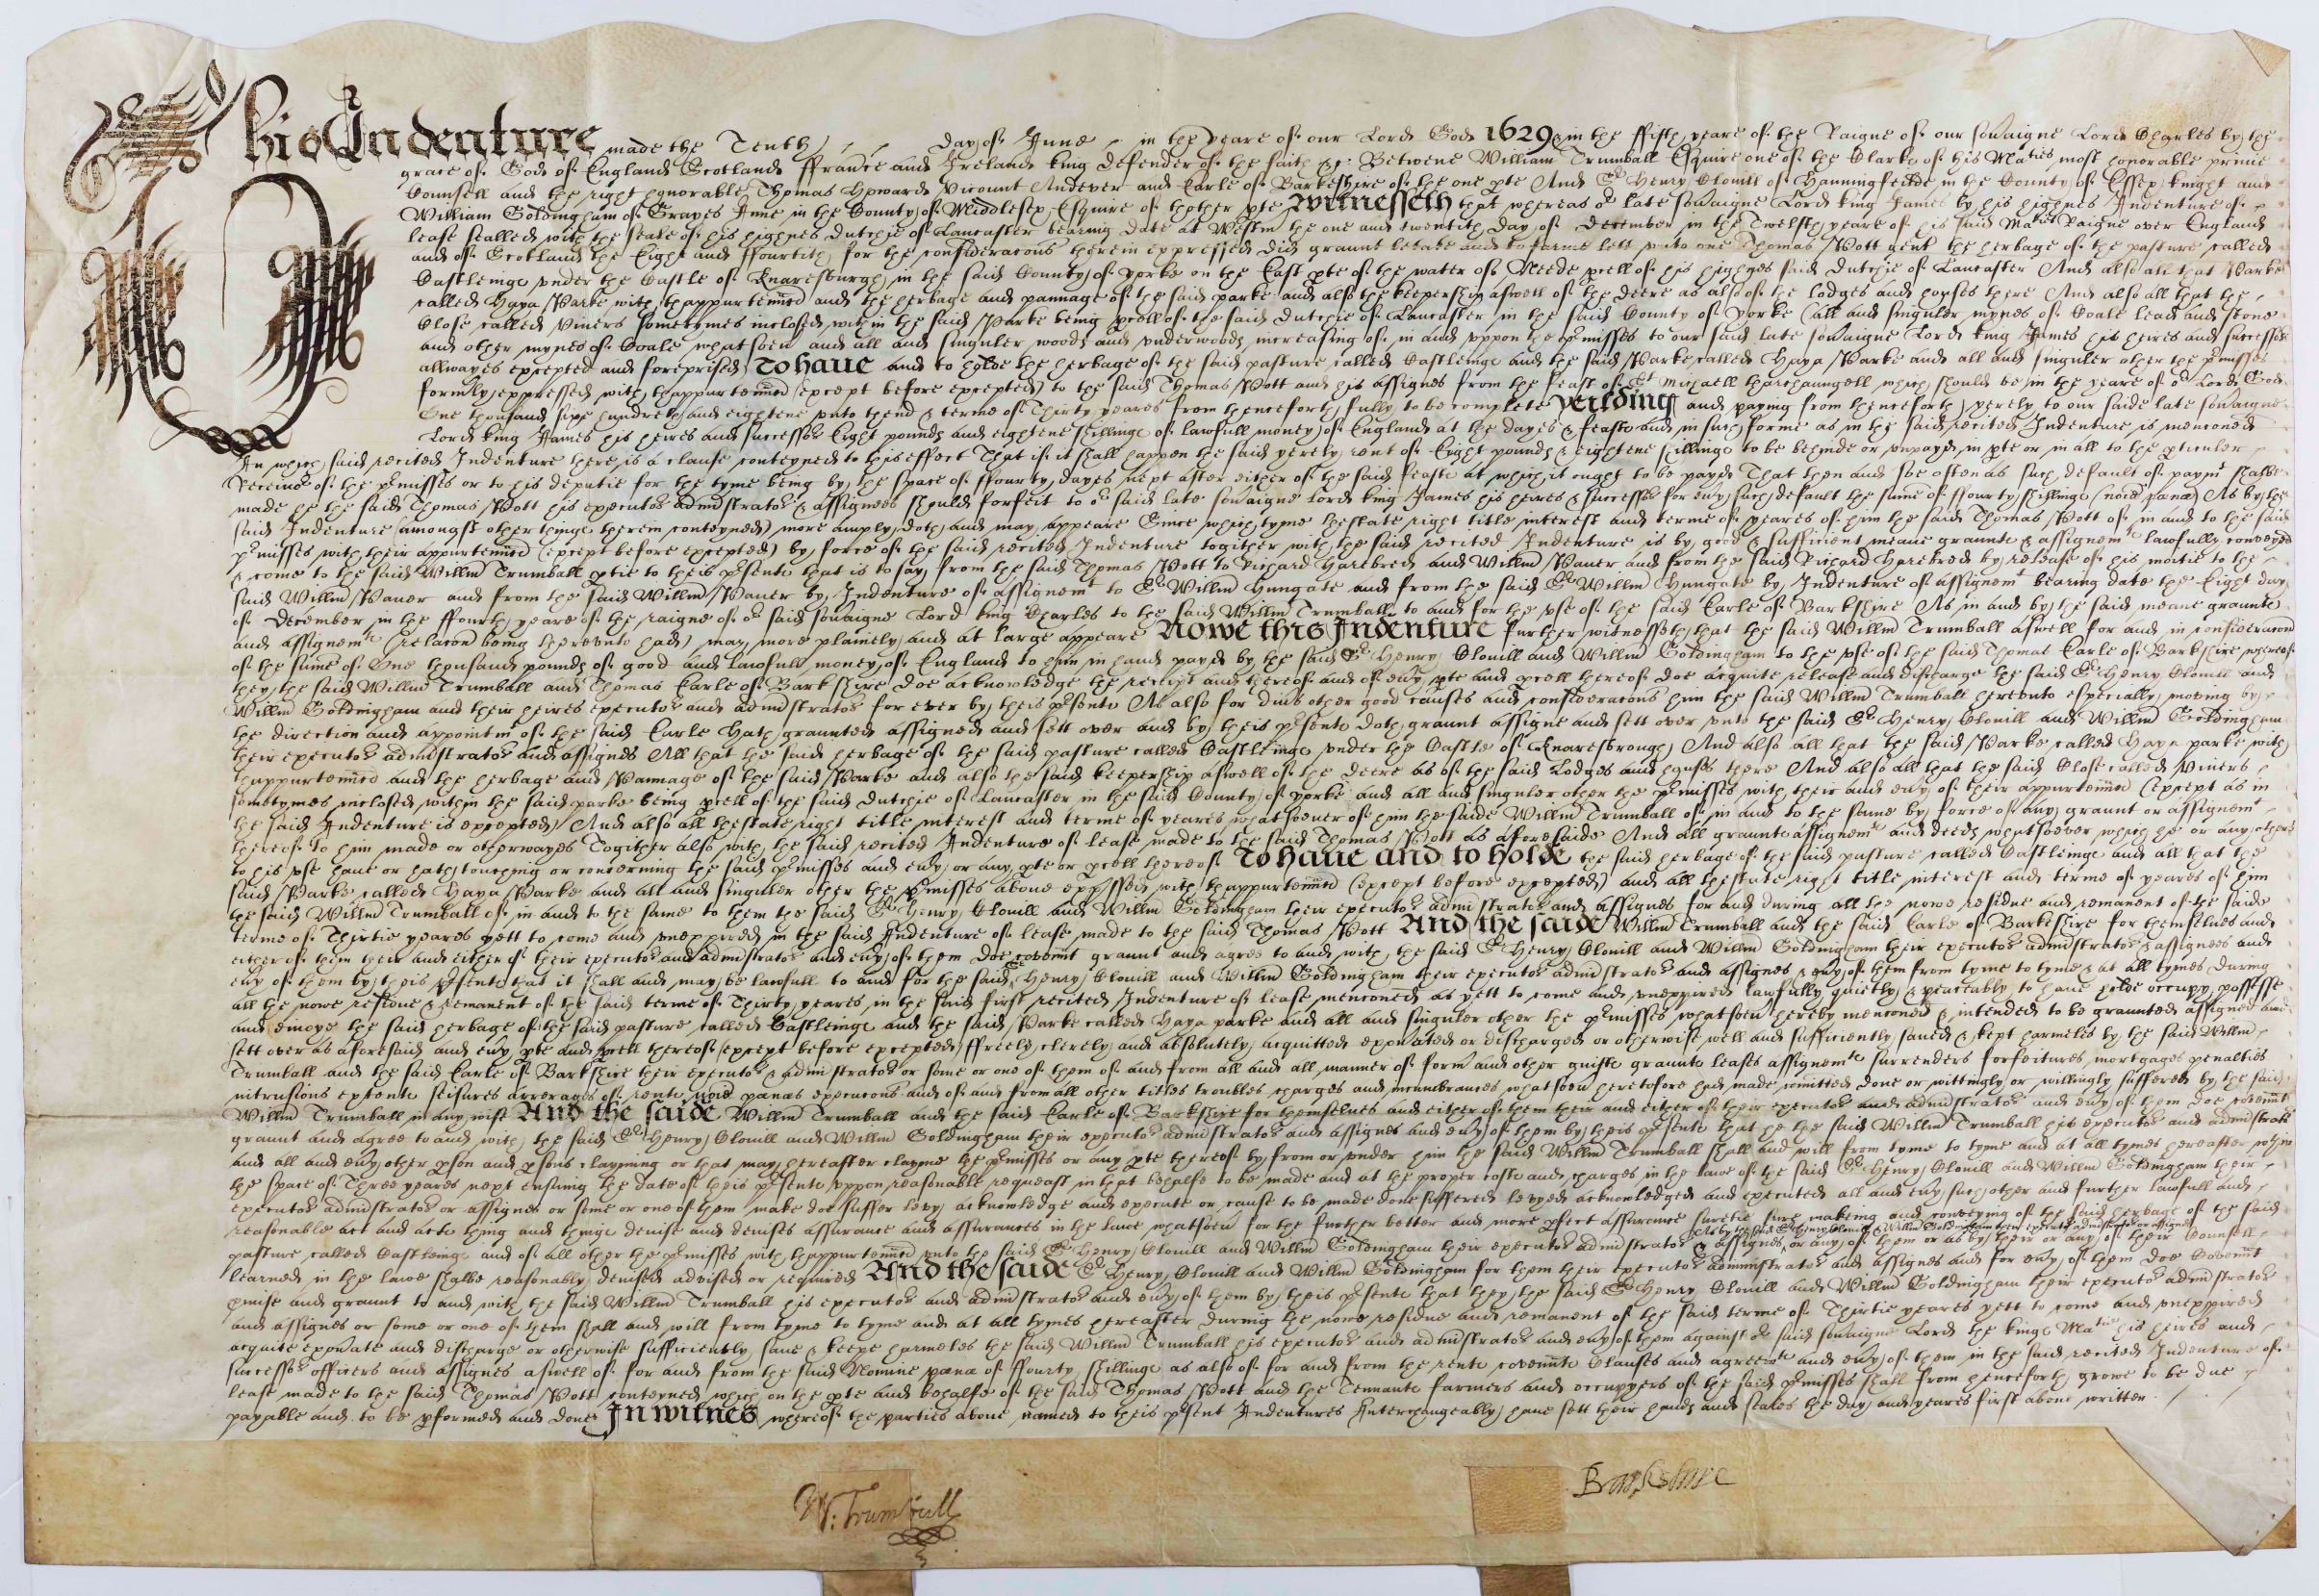 This Indenture made the Tenth day of June in the yeare of our Lord God 1629 & in the ffifth yeare of the Raigne of our sovaigne Lord Charles by the
grace of God of England Scotland ffrance and Ireland king defender of the faith &c Betwene William Trumball Esquire one of the Clarks of his Maties most honorable privie
Counsell and the right honorable Thomas Howard Vicount Andever and Earle of Barkeshire of the one pte And Sr Henry Clovill of Hanningfeilde in the County of Essex knight and
William Goldingham of Grayes Inne in the County of Middlesex Esquire of thother pte Witnesseth that whereas or late sovaigne Lord king James by his highnes Indenture of
lease sealled with the seale of his highnes Dutchie of Lancaster bearing date at Westm the one and twentith day of December in the Twelfth yeare of his said Maties Raigne over England
and of Scotland the Eight and ffourtith for the consideracons therein expressed did graunt betake and to farme lett unto one Thomas Pott gent the herbage of the pasture called
Castleinge under the Castle of Knaresburgh in the said County of Yorke on the East pte of the water of Neede pcell of his highnes said Dutchie of Lancaster And also all that Parke
called Haya Parke with thappurtennces and the herbage and pannage of the said parke and also the keepership aswell of the deere as also of the lodges and howses there And also all that the
Close called Viners sometymes inclosed with in the said Parke being pcell of the said Dutchie of Lancaster in the said County of Yorke (all and singuler mynes of Coale lead and stone
and other mynes of Coale whatsoevr and all and singuler woods and underwoods increasing of in and uppon the pmisses to our said late sovaigne Lord king James his heires and successors
allwayes excepted and foreprised) To have and to holde the herbage of the said pasture called Castleinge and the said Parke called Haya Parke and all and singuler other the pmisses
formerly expressed with thappurtennces (except before excepted) to the said Thomas Pott and his assignes from the feast of St Michaell tharchaungell which should be in the yeare of or Lord God
One thousand sixe hundreth and eightene unto thend & terme of Thirty yeares from thenceforth fully to be complete Yeilding and paying from thenceforth yerely to our saide late sovaigne
Lord king James his heires and successors Eight pounds and eightene shillings of lawfull money of England at the dayes & feasts and in such forme as in the said recited Indenture is menconed
In which said recited Indenture there is a clause conteyned to this effect That if it shall happen the said yerely rent of Eight pounds & eightene shillings to be behinde or unpayd in pte or in all to the pticuler
Receivor of the pmisses or to his deputie for the tyme being by the space of ffourty dayes next after either of the said feasts at which it ought to be payd That then and soe often as such default of paymt shalbe
made he the said Thomas Pott his executors administrators & assignees should forfeit to or said late sovaigne Lord king James his heires & successors for evy such default the sume of ffourty shillings (noie pene) As by the
said Indenture (amongst other things therein conteyned) more amply doth and may appeare Since which tyme thestate right title interest and terme of yeares of him the said Thomas Pott of in and to the said
pmisses with their appurtennces (except before excepted) by force of the said recited Indenture togither with the said recited Indenture is by good & sufficient meane graunts & assignemts lawfully conveyed
& come to the said Willm Trumball ptie to theis psents that is to say from the said Thomas Pott to Richard Harebred and Willm Paver and from the said Richard Harebred by release of his moitie to the
said Willm Paver and from the said Willm Paver by Indenture of assignemt to Sr Willm Hungate and from the said Sr Willm Hungate by Indenture of assignemt bearing date the Eight day
of December in the ffourth yeare of the raigne of or said sovaigne Lord king Charles to the said Willm Trumball to and for the use of the said Earle of Barkshire As in and by the said meane graunts
and assignemts (relacon being thereunto had) may more plainely and at large appeare Nowe this Indenture further witnesseth that the said Willm Trumball aswell for and in consideracon
of the sume of One thousand pounds of good and lawfull money of England to him in hand payd by the said Sr Henry Clovill and Willm Goldingham to the use of the said Thomas Earle of Barkshire whereof
they the said Willm Trumball and Thomas Earle of Barkshire doe acknowledge the receipt and thereof and of evy pte and pcell thereof doe acquite release and discharge the said Sr Henry Clovill and
Willm Goldingham and their heires executors and administrators for ever by theis psents As also for divs other good causes and consideracons him the said Willm Trumball hereunto especially moving by
the direction and appointmt of the said Earle Hath graunted assigned and sett over and by theis psents doth graunt assigne and sett over unto the said Sr Henry Clovill and Willm Goldingham
their executors administrators and assignes All that the said herbage of the said pasture called Castleinge under the Castle of Knaresbrough And also all that the said Parke called Haya parke with
thappurtennces and the herbage and Pannage of the said Parke and also the said keepership aswell of the deere as of the said Lodges and howses there And also all that the said Close called Viners
sometymes inclosed within the said parke being pcell of the said Dutchie of Lancaster in the said County of Yorke and all and singuler other the pmisses with their and evy of their appurtennces (except as in
the said Indenture is excepted) And also all thestate right title interest and terme of yeares whatsoever of him the saide Willm Trumball of in and to the same by force of any graunt or assignemt
thereof to him made or otherwayes Togither also with the said recited Indenture of lease made to the said Thomas Pott as aforesaide And all graunts assignemts and deeds whatsoever which he or any others
to his use have or hath touching or concerning the said pmisses and evy or any pte or pcell thereof To have and to holde the said herbage of the said pasture called Castleinge and all that the
said Parke called Haya Parke and all and singuler other the pmisses above expssed with thappurtennces (except before excepted) and all thestate right title interest and terme of yeares of him
the said Willm Trumball of in and to the same to them the said Sr Henry Clovill and Willm Goldingham their executors administrators and assignes for and during all the nowe residue and remanent of the saide
terme of Thirtie yeares yett to come and unexpired in the said Indenture of lease made to the said Thomas Pott And the saide Willm Trumball and the said Earle of Barkeshire for themselves and
either of them their and either of their executors and administrators and evy of them doe covennt graunt and agree to and with the said Sr Henry Clovill and Willm Goldingham their executors administrators & assignees and
evy of them by theis psents that it shall and may be lawfull to and for the said Sr Henry Clovill and Willm Goldingham their executors administrators and assignes & evy of them from tyme to tyme & at all tymes during
all the nowe residue & remanent of the said terme of Thirty yeares in the said first recited Indenture of lease menconed as yett to come and unexpired lawfully quietly & peaceably to have holde occupy possesse
and enioye the said herbage of the said pasture called Castleinge and the said Parke called Haya parke and all and singuler other the pmisses whatsoevr hereby menconed & intended to be graunted assigned and
sett over as aforesaid and evy pte and pcell thereof (except before excepted) ffreely clerely and absolutely acquitted exonerated or discharged or otherwise well and sufficiently saved & kept harmeles by the said Willm
Trumball and the said Earle of Barkshire their executors & administrators or some or one of them of and from all and all manner of form and other guifts graunts leases assignemts surrenders forfeitures mortgages penalties
intrusions extents seisures arrerages of rents noie penas execucons and of and from all other titles troubles charges and incumbrances whatsoevr heretofore had made comitted done or wittingly or willingly suffered by the said
Willm Trumball in any wise And the saide Willm Trumball and the said Earle of Barkshire for themselves and either of them their and either of their executors and administrators and evy of them doe covennt
graunt and agree to and with the said Sr Henry Clovill and Willm Goldingham their executors administrators and assignes and evy of them by theis psents that he the said Willm Trumball his executors and administrators
and all and evy other pson and psons clayming or that may hereafter clayme the pmisses or any pte thereof by from or under him the said Willm Trumball shall and will from tyme to tyme and at all tymes hereafter within
the space of Three yeares next ensuing the date of theis psents uppon reasonable request in that behalfe to be made and at the proper costs and charges in the lawe of the said Sr Henry Clovill and Willm Goldingham their
executors administrators or assignes or some or one of them make doe suffer levy acknowledge and execute or cause to be made done suffered levyed acknowledged and executed all and evy such other and further lawfull and
reasonable act and acts thing and things devise and devises assurance and assurances in the lawe whatsoevr for the further better and more pfect assurance suretie sure making and conveying of the said herbage of the said
pasture called Castleinge and of all other the pmisses with thappurtennces unto the said Sr Henry Clovill and Willm Goldingham their executors administrators & assignes as by the said Sr Henry Clovill & Willm Goldingham their executors administrators or assignes or any of them or as by their or any of their Counsell
learned in the lawe shalbe reasonably devised advised or required And the saide Sr Henry Clovill and Willm Goldingham for them their executors administrators and assignes and for evy of them doe Covennt
pmise and graunt to and with the said Willm Trumball his executors and administrators and evy of them by theis psents that they the said Sr Henry Clovill and Willm Goldingham their executors administrators
and assignes or some or one of them shall and will from tyme to tyme and at all tymes hereafter during the nowe residue and remanent of the said terme of Thirtie yeares yett to come and unexpired
acquite exonate and discharge or otherwise sufficiently save & keepe harmeles the said Willm Trumball his executors and administrators and evy of them against or said sovaigne Lord the kings Matie his heires and
successors officers and assignes aswell of for and from the said Nomine pena of ffourty shillings as also of for and from the rents covennts Clauses and agreemts and evy of them in the said recited Indenture of
lease made to the said Thomas Pott conteyned which on the pte and behalfe of the said Thomas Pott and the Tennants farmers and occupyers of the said pmisses shall from henceforth growe to be due
payable and to be pformed and done In witnes whereof the parties above named to theis psent Indentures Interchangeably have sett their hands and seales the day and yeares first above written
W: Trumbull
Barkshire